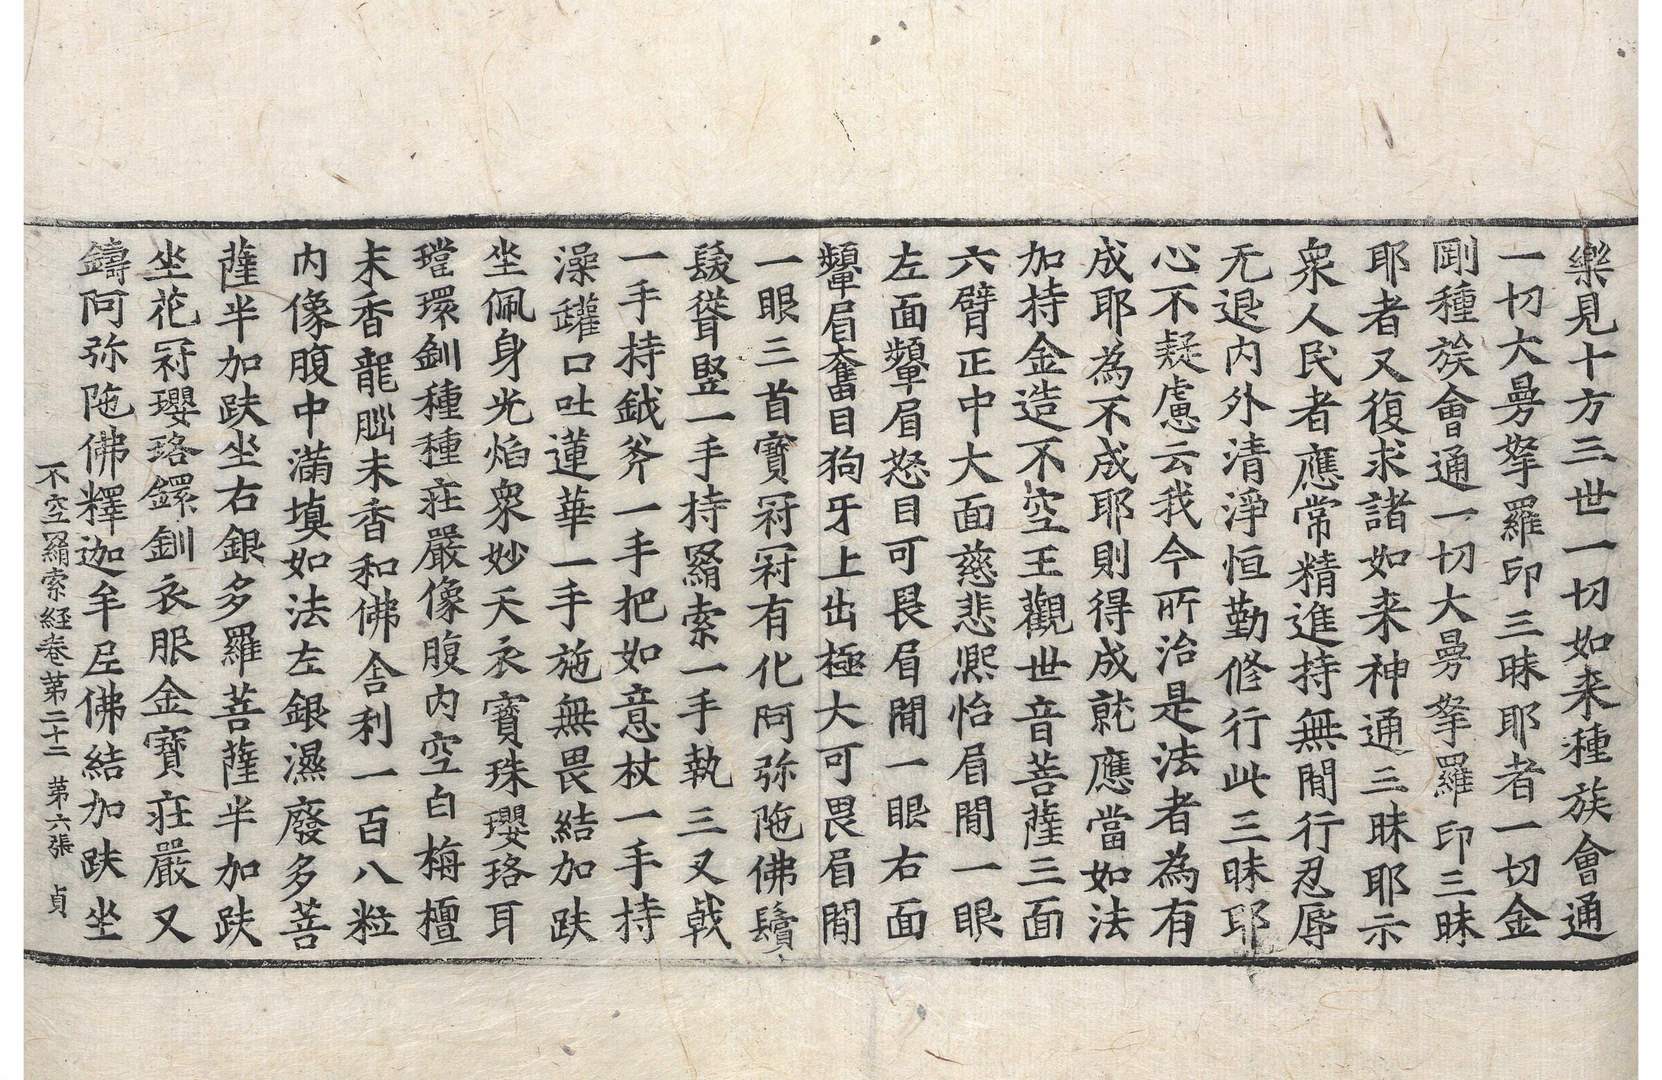 樂見十方三世一切如来種族會通
一切大曼拏羅印三昧耶者一切金
剛種族會通一切大曼拏羅印三昧
耶者又復求諸如来神通三昧耶示
衆人民者應常精進持無閒行忍辱
无退内外清淨恒勤修行此三昧耶
心不疑慮云我今所治是法者為有
成耶為不成耶則得成就應當如法
加持金造不空王觀世音菩薩三面
六臂正中大面慈悲熈怡眉閒一眼
左面顰眉怒目可畏眉閒一眼右面
顰眉奮目狗牙上出極大可畏眉閒
一眼三首寶冠冠有化阿弥陁佛鬚
鬘聳竪一手持羂索一手執三叉戟
一手持鉞斧一手把如意杖一手持
澡罐口吐蓮華一手施無畏結加趺
坐佩身光焰衆妙天衣寶珠瓔珞耳
璫環釧種種莊嚴像腹内空白栴檀
末香龍𦛁末香和佛舍利一百八粒
内像腹中滿填如法左銀濕廢多菩
薩半加趺坐右銀多羅菩薩半加趺
坐花冠瓔珞鐶釧衣服金寶莊嚴又
鑄阿弥陁佛釋迦牟尼佛結加趺坐
不空羂索経卷苐二十二 苐六張 貞